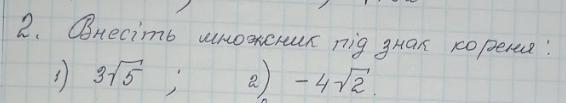 2. Внесіть множник під знак кореня:
1) 3√5 ; 2) -4√2.